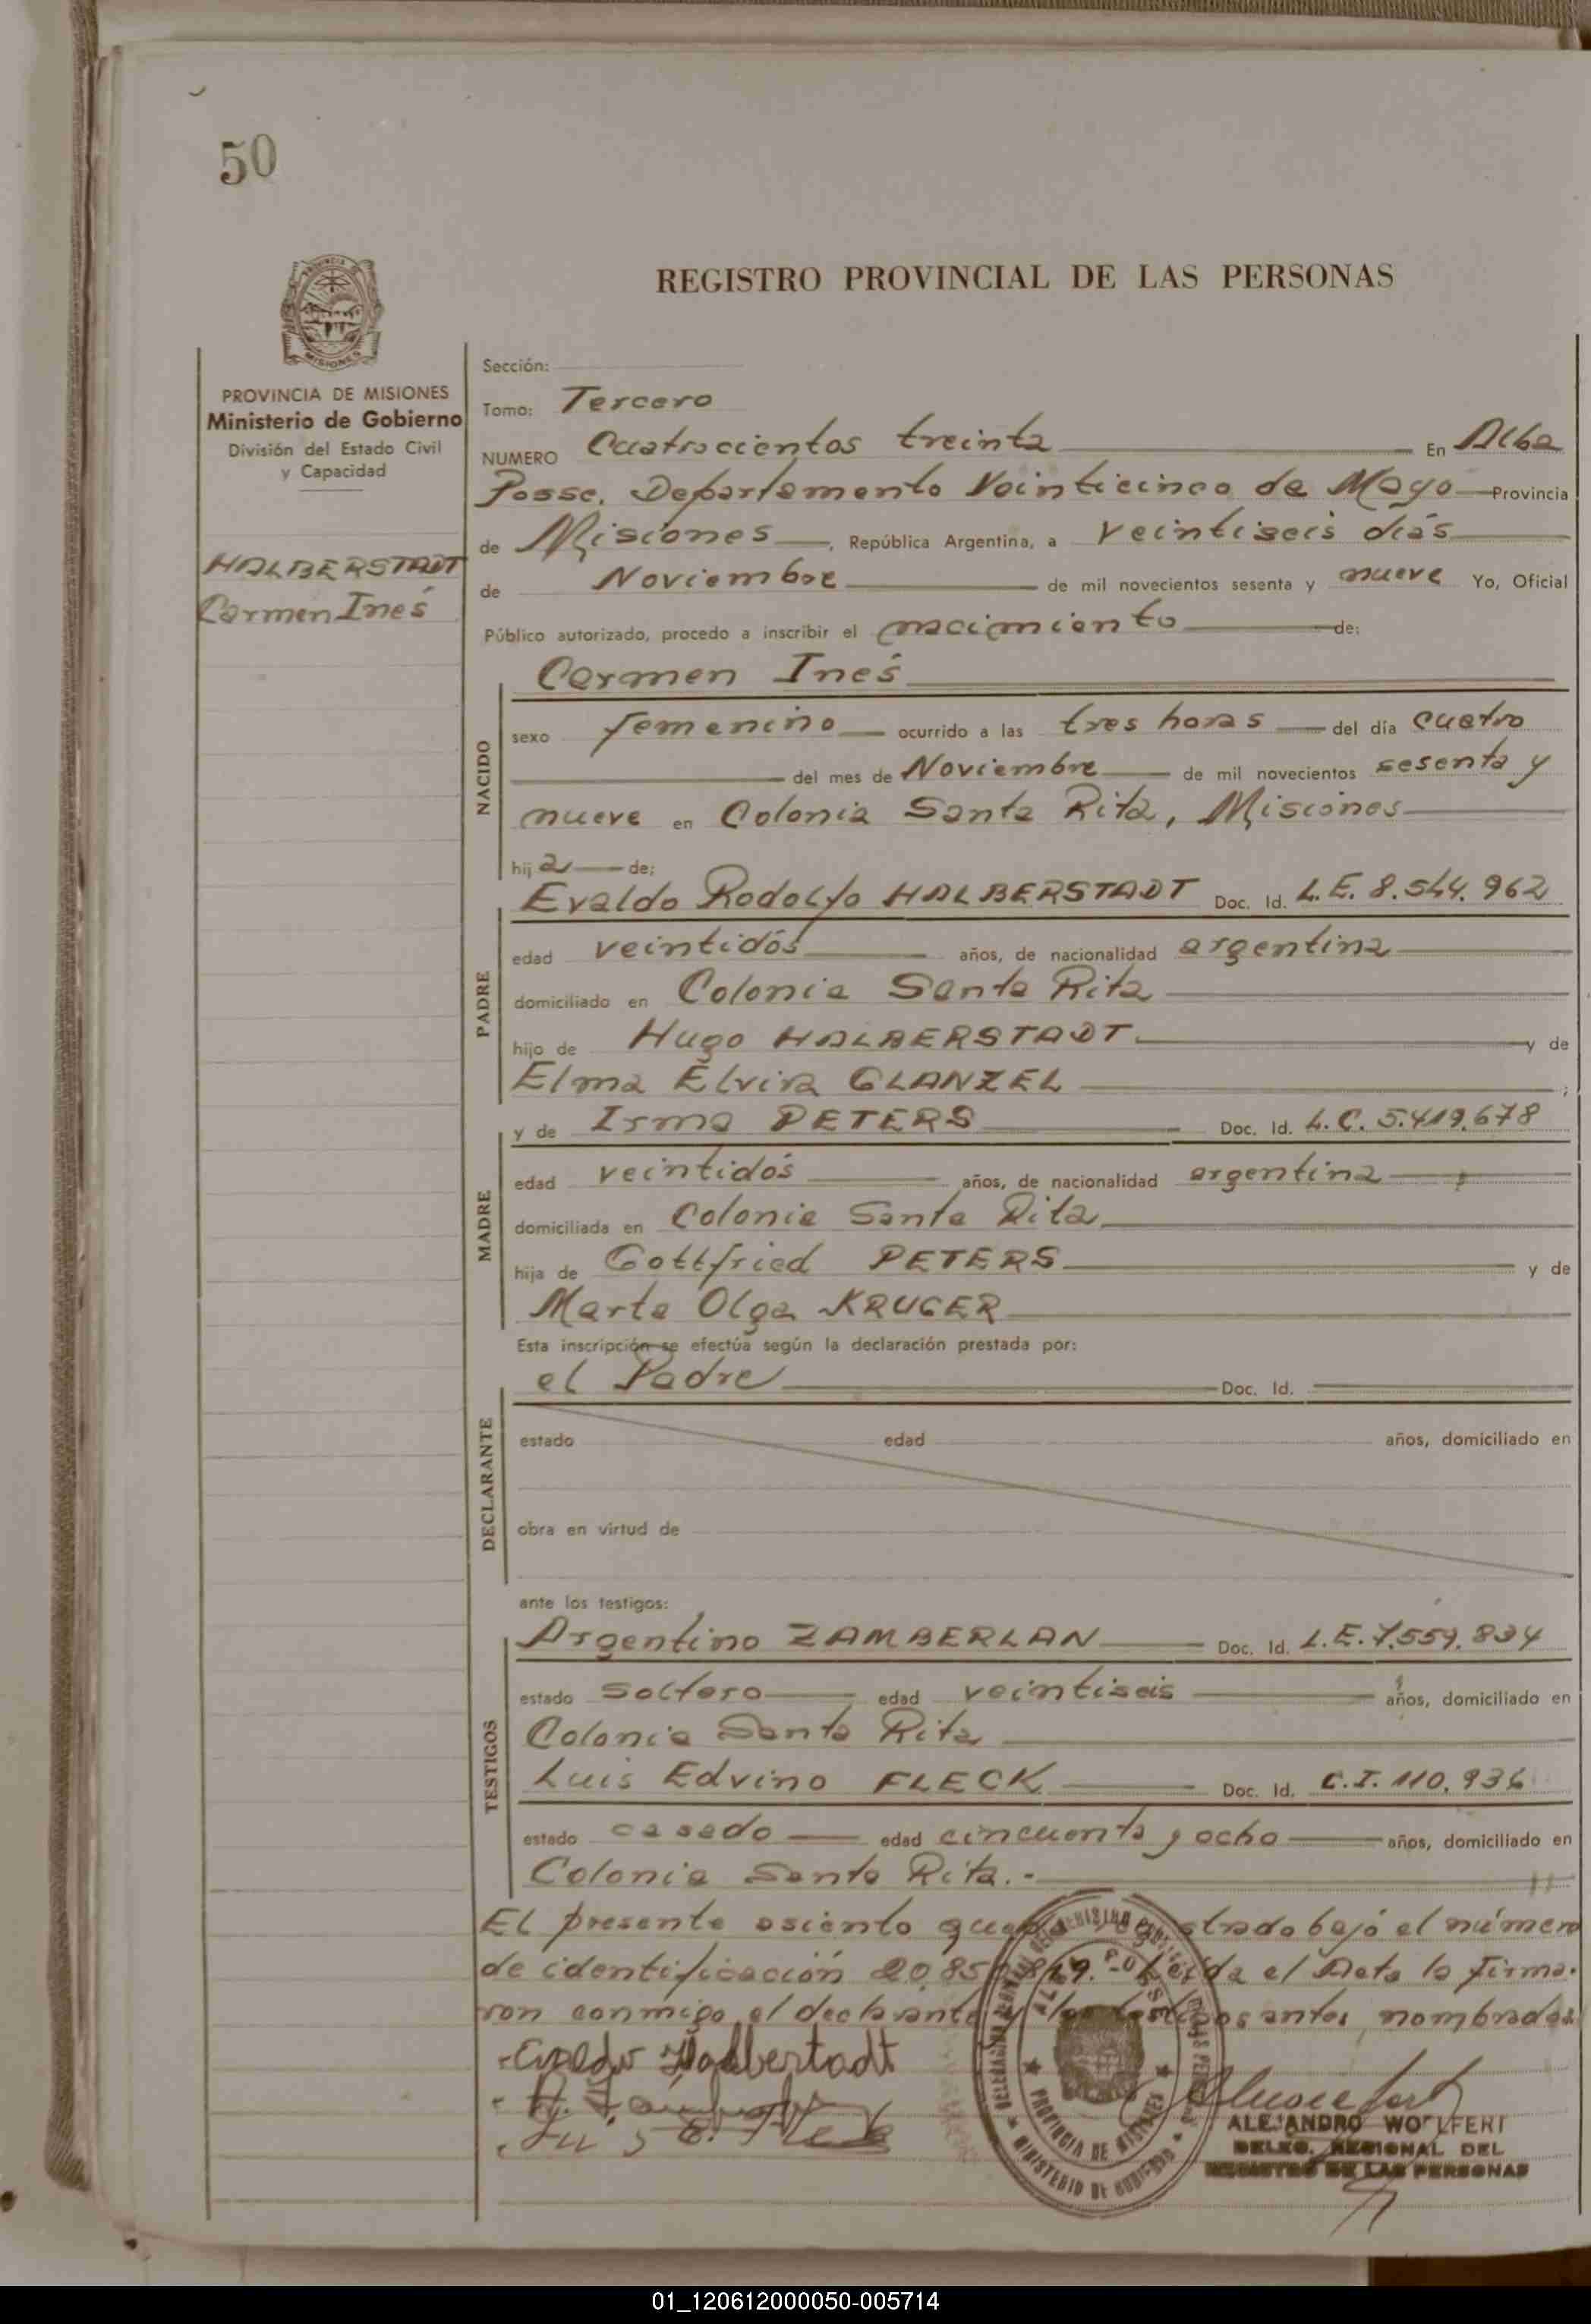 50
REGISTRO PROVINCIAL DE LAS PERSONAS
PROVINCIA DE MISIONES
Ministerio de Gobierno
División del Estado Civil
y Capacidad
HALBERSTADT
Carmen Inés
Sección:
Tomo: Tercero
NUMERO Cuatrocientos treinta En Alba
Posse. Departamento Veinticinco de Mayo Provincia
de Misiones, República Argentina, a veintiseis días
de Noviembre de mil novecientos sesenta y nueve Yo, Oficial
Público autorizado, procedo a inscribir el nacimiento de:
Carmen Inés
NACIDO
sexo femenino ocurrido a las tres horas del día cuatro
del mes de Noviembre de mil novecientos sesenta y
nueve en Colonia Santa Rita, Misiones
hija de:
Evaldo Rodolfo HALBERSTADT Doc. Id. L.E. 8.544.962
PADRE
edad veintidós años, de nacionalidad argentina
domiciliado en Colonia Santa Rita
hijo de Hugo HALBERSTADT. y de
Elma Elvira GLANZEL ;
y de Irma PETERS Doc. Id. L.C. 5.419.678
MADRE
edad veintidós años, de nacionalidad argentina
domiciliada en Colonia Santa Rita
hija de Gottfried PETERS y de
Marta Olga KRUGER
Esta inscripción se efectúa según la declaración prestada por:
el Padre Doc. Id.
DECLARANTE
estado edad años, domiciliado en
obra en virtud de
ante los testigos:
Argentino ZAMBERLAN Doc. Id. L.E. 7.559.834
TESTIGOS
estado soltero edad veintiseis años, domiciliado en
Colonia Santa Rita
Luis Edvino FLECK Doc. Id. C.I. 110.936
estado casado edad cincuenta y ocho años, domiciliado en
Colonia Santa Rita.-
El presente asiento bajo el número
de identificación Leida el Acta la firma-
ron conmigo el declarante y los testigos antes nombrados
Evaldo Halberstadt
ALEJANDRO WOLFERT
DELEG. REGIONAL DEL
REGISTRO DE LAS PERSONAS
PROVINCIA DE MISIONES
MINISTERIO DE GOBIERNO
01_120612000050-005714